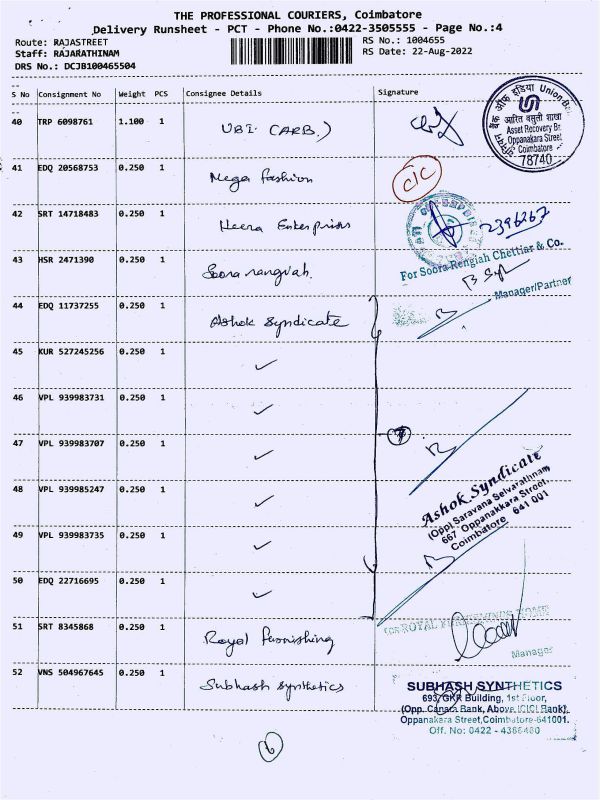 THE PROFESSIONAL COURIERS, Coimbatore
Delivery Runsheet - PCT - Phone No.:0422-3505555 - Page No.:4
Route: RAJASTREET RS No.: 1004655
Staff: RAJARATHINAM RS Date: 22-Aug-2022
DRS No.: DCJB100465504
S No Consignment No Weight PCS Consignee Details Signature
40 TRP 6098761 1.100 1 UBI (ARB.)
यूनियन बैंक ऑफ इंडिया Union Ba
आस्ति वसूली शाखा
Asset Recovery Br.
Oppanakara Street
Coimbatore
78740
41 EDQ 20568753 0.250 1 Mega fashion CIC
42 SRT 14718483 0.250 1 Heera Enterprises 2396267
43 HSR 2471390 0.250 1 Soora rangiah.
For Soora Rengiah Chettiar & Co.
Manager/Partner
44 EDQ 11737255 0.250 1 Ashok Syndicate
45 KUR 527245256 0.250 1 ✓
46 VPL 939983731 0.250 1 ✓
47 VPL 939983707 0.250 1 ✓ 7
48 VPL 939985247 0.250 1 ✓
Ashok Syndicate
(Opp) Saravana Selvarathnam
667 Oppanakkara Street,
Coimbatore 641 001
49 VPL 939983735 0.250 1 ✓
50 EDQ 22716695 0.250 1 ✓
For ROYAL FURNISHINGS HOME
51 SRT 8345868 0.250 1 Royal furnishing
Manager
52 VNS 504967645 0.250 1 Subhash Synthetics
SUBHASH SYNTHETICS
693, GKR Building, 1st Floor,
(Opp. Canara Bank, Above ICICI Bank),
Oppanakara Street, Coimbatore-641001.
Off. No: 0422 - 4386480
6